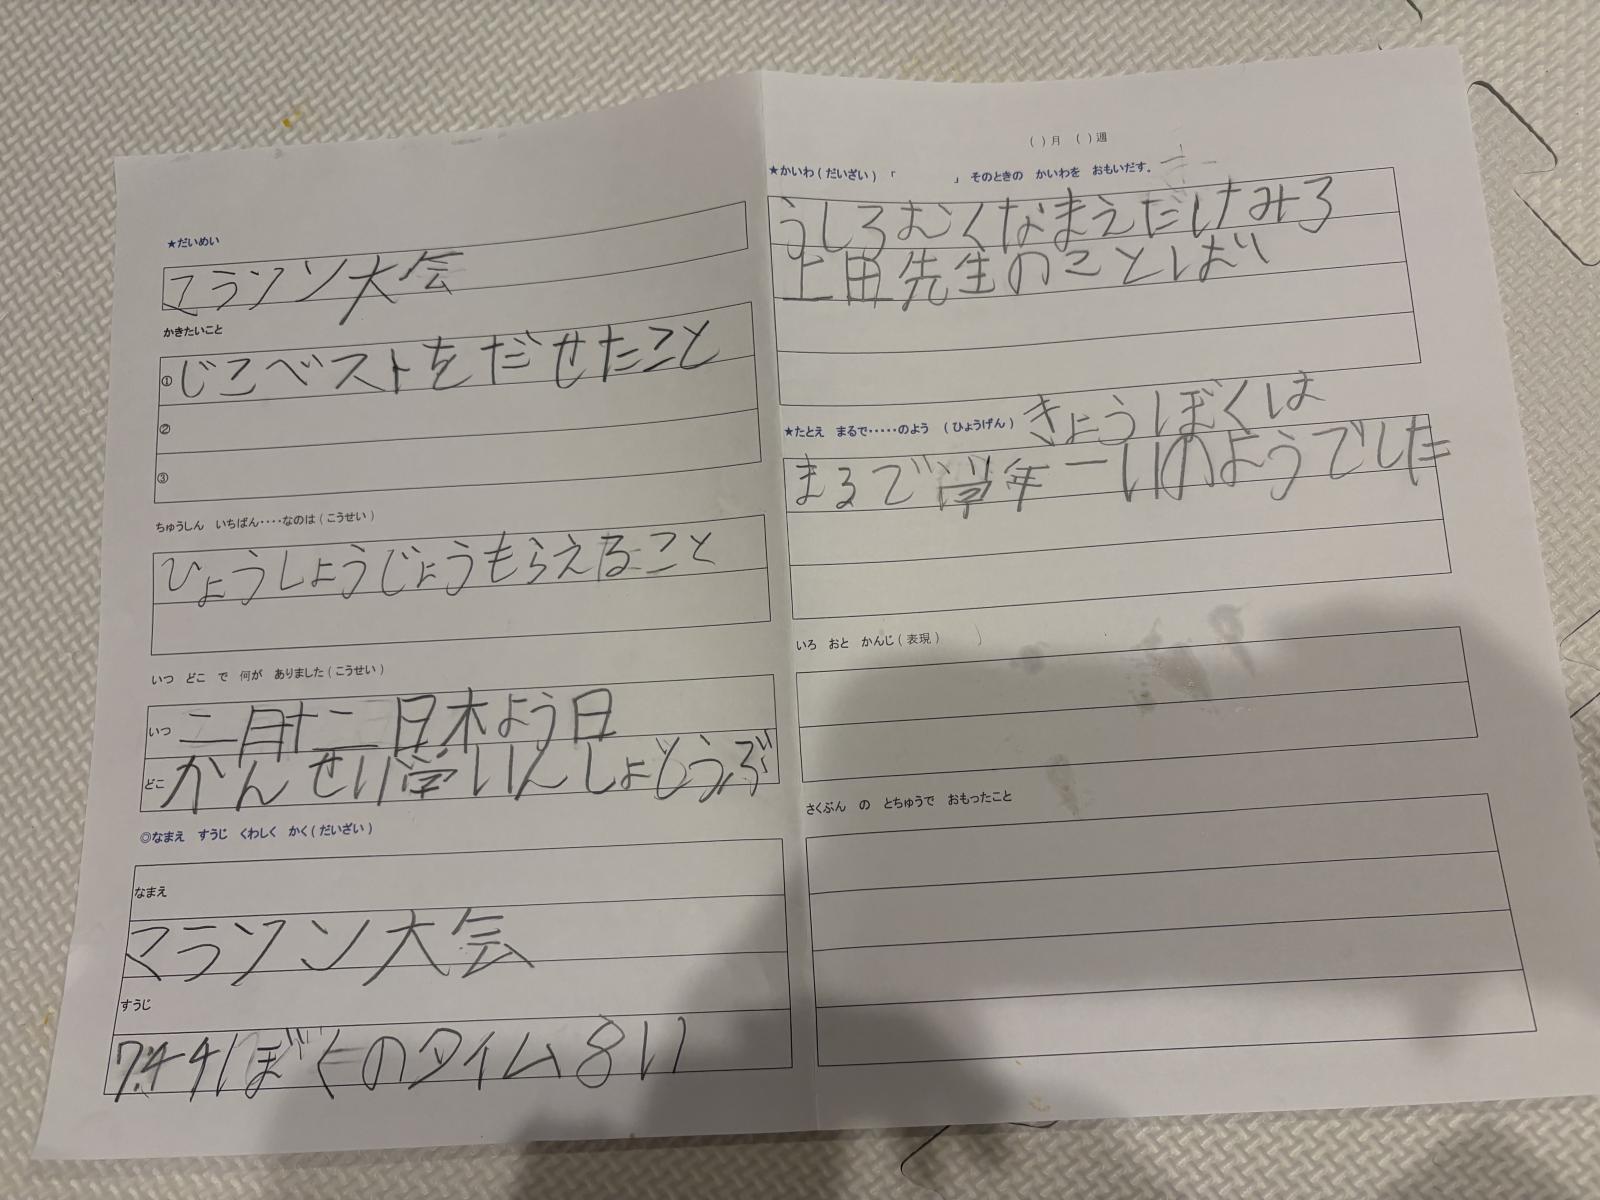 ★だいめい
マラソン大会
かきたいこと
① じこベストをだせたこと
②
③
ちゅうしん いちばん・・・・なのは(こうせい)
ひょうしょうじょうもらえること
いつ どこ で 何が ありました(こうせい)
いつ 二月十二日木よう日
どこ かんせい学いんしょとうぶ
◎なまえ すうじ くわしく かく(だいざい)
なまえ
マラソン大会
すうじ
7.44ぼくのタイム8い
( )月 ( )週
★かいわ(だいざい) 「 」 そのときの かいわを おもいだす。
うしろむくなまえだけみろ
上田先生のことばい
★たとえ まるで・・・・・のよう (ひょうげん) きょうぼくは
まるで学年一いのようでした
いろ おと かんじ(表現)
さくぶん の とちゅうで おもったこと